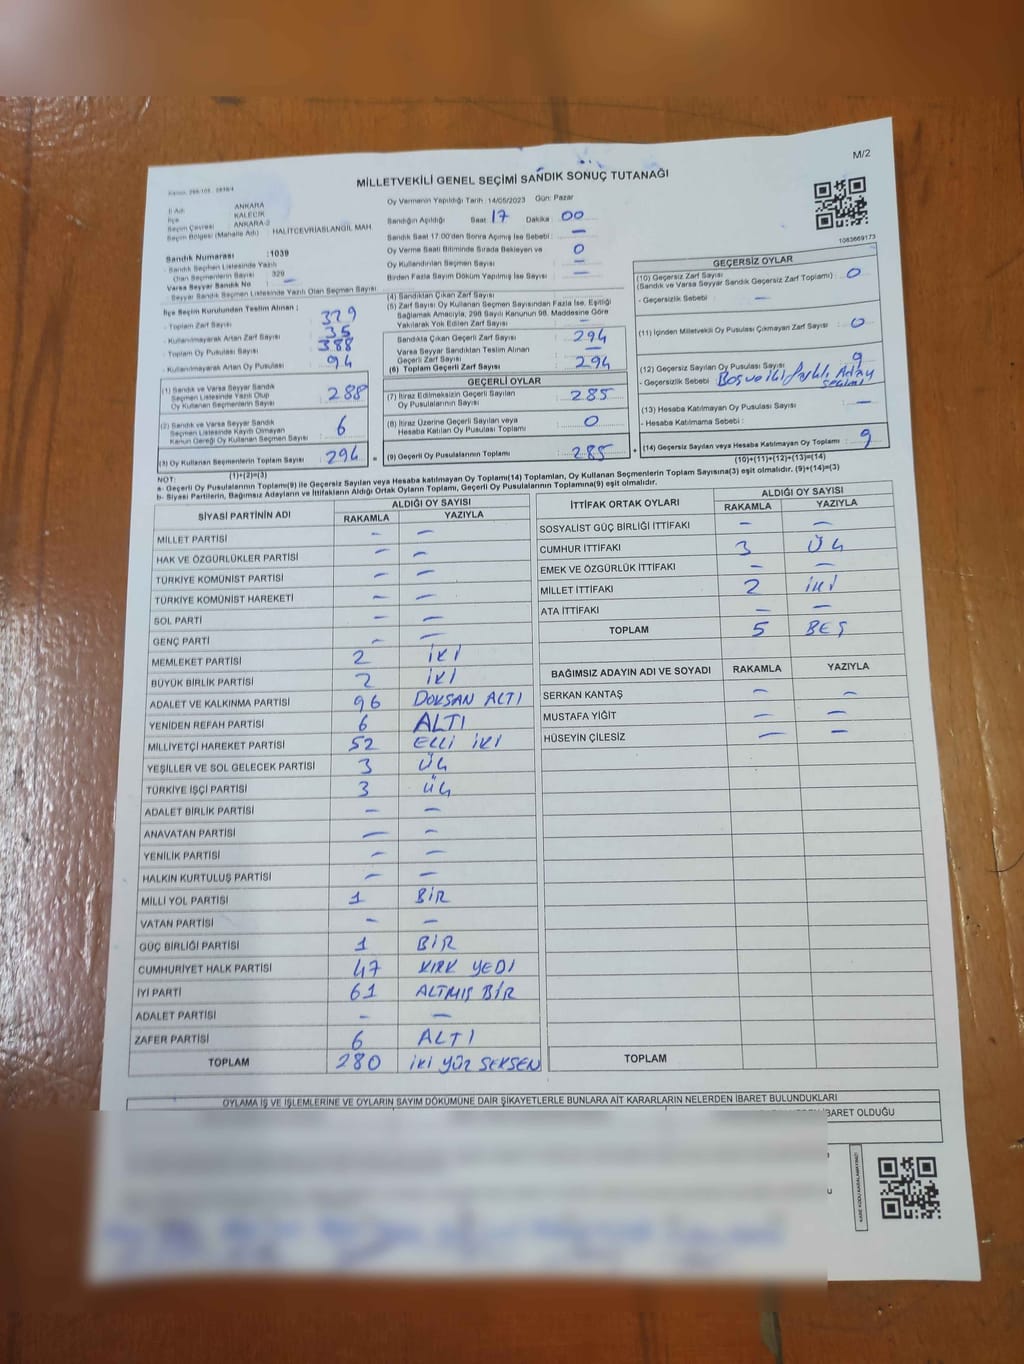 M/2
MİLLETVEKİLİ GENEL SEÇİMİ SANDIK SONUÇ TUTANAĞI
İl Adı ANKARA
İlçe KALECİK
Seçim Çevresi ANKARA-3
Seçim Bölgesi (Mahalle Adı) HALİTCEVRİASLANGİL MAH.
Sandık Numarası :1039
- Sandık Seçmen Listesinde Yazılı
Olan Seçmenlerin Sayısı 329
Varsa Seyyar Sandık No –
Seyyar Sandık Seçmen Listesinde Yazılı Olan Seçmen Sayısı
Oy Vermenin Yapıldığı Tarih :14/05/2023 Gün: Pazar
Sandığın Açıldığı Saat 17 Dakika 00
Sandık Saat 17.00'den Sonra Açılmış İse Sebebi : –
Oy Verme Saati Bitiminde Sırada Bekleyen ve 0
Oy Kullandırılan Seçmen Sayısı –
Birden Fazla Sayım Döküm Yapılmış İse Sayısı –
1083669173
İlçe Seçim Kurulundan Teslim Alınan ;
- Toplam Zarf Sayısı 329
- Kullanılmayarak Artan Zarf Sayısı 35
- Toplam Oy Pusulası Sayısı 388
- Kullanılmayarak Artan Oy Pusulası 94
(1) Sandık ve Varsa Seyyar Sandık
Seçmen Listesinde Yazılı Olup
Oy Kullanan Seçmenlerin Sayısı 288
(2) Sandık ve Varsa Seyyar Sandık
Seçmen Listesinde Kayıtlı Olmayan
Kanun Gereği Oy Kullanan Seçmen Sayısı 6
(3) Oy Kullanan Seçmenlerin Toplam Sayısı 294
(1)+(2)=(3)
(4) Sandıktan Çıkan Zarf Sayısı
(5) Zarf Sayısı Oy Kullanan Seçmen Sayısından Fazla İse, Eşitliği
Sağlamak Amacıyla, 298 Sayılı Kanunun 98. Maddesine Göre
Yakılarak Yok Edilen Zarf Sayısı
Sandıkta Çıkan Geçerli Zarf Sayısı 294
Varsa Seyyar Sandıktan Teslim Alınan
Geçerli Zarf Sayısı –
(6) Toplam Geçerli Zarf Sayısı 294
GEÇERLİ OYLAR
(7) İtiraz Edilmeksizin Geçerli Sayılan
Oy Pusulalarının Sayısı 285
(8) İtiraz Üzerine Geçerli Sayılan veya
Hesaba Katılan Oy Pusulası Toplamı 0
= (9) Geçerli Oy Pusulalarının Toplamı 285
GEÇERSİZ OYLAR
(10) Geçersiz Zarf Sayısı
(Sandık ve Varsa Seyyar Sandık Geçersiz Zarf Toplamı) : 0
- Geçersizlik Sebebi : –
(11) İçinden Milletvekili Oy Pusulası Çıkmayan Zarf Sayısı : 0
(12) Geçersiz Sayılan Oy Pusulası Sayısı : 9
- Geçersizlik Sebebi : Boş ve iki farklı Aday seçimi
(13) Hesaba Katılmayan Oy Pusulası Sayısı : –
- Hesaba Katılmama Sebebi :
+ (14) Geçersiz Sayılan veya Hesaba Katılmayan Oy Toplamı : 9
(10)+(11)+(12)+(13)=(14)
NOT:
a- Geçerli Oy Pusulalarının Toplamı(9) ile Geçersiz Sayılan veya Hesaba katılmayan Oy Toplamı(14) Toplamları, Oy Kullanan Seçmenlerin Toplam Sayısına(3) eşit olmalıdır. (9)+(14)=(3)
b- Siyasi Partilerin, Bağımsız Adayların ve İttifakların Aldığı Ortak Oyların Toplamı, Geçerli Oy Pusulalarının Toplamına(9) eşit olmalıdır.
SİYASİ PARTİNİN ADI ALDIĞI OY SAYISI
RAKAMLA YAZIYLA
MİLLET PARTİSİ – –
HAK VE ÖZGÜRLÜKLER PARTİSİ – –
TÜRKİYE KOMÜNİST PARTİSİ – –
TÜRKİYE KOMÜNİST HAREKETİ – –
SOL PARTİ – –
GENÇ PARTİ – –
MEMLEKET PARTİSİ 2 İKİ
BÜYÜK BİRLİK PARTİSİ 2 İKİ
ADALET VE KALKINMA PARTİSİ 96 DOKSAN ALTI
YENİDEN REFAH PARTİSİ 6 ALTI
MİLLİYETÇİ HAREKET PARTİSİ 52 ELLİ İKİ
YEŞİLLER VE SOL GELECEK PARTİSİ 3 ÜÇ
TÜRKİYE İŞÇİ PARTİSİ 3 ÜÇ
ADALET BİRLİK PARTİSİ – –
ANAVATAN PARTİSİ – –
YENİLİK PARTİSİ – –
HALKIN KURTULUŞ PARTİSİ – –
MİLLİ YOL PARTİSİ 1 BİR
VATAN PARTİSİ – –
GÜÇ BİRLİĞİ PARTİSİ 1 BİR
CUMHURİYET HALK PARTİSİ 47 KIRK YEDİ
İYİ PARTİ 61 ALTMIŞ BİR
ADALET PARTİSİ – –
ZAFER PARTİSİ 6 ALTI
TOPLAM 280 İKİ YÜZ SEKSEN
İTTİFAK ORTAK OYLARI ALDIĞI OY SAYISI
RAKAMLA YAZIYLA
SOSYALİST GÜÇ BİRLİĞİ İTTİFAKI – –
CUMHUR İTTİFAKI 3 ÜÇ
EMEK VE ÖZGÜRLÜK İTTİFAKI – –
MİLLET İTTİFAKI 2 İKİ
ATA İTTİFAKI – –
TOPLAM 5 BEŞ
BAĞIMSIZ ADAYIN ADI VE SOYADI RAKAMLA YAZIYLA
SERKAN KANTAŞ – –
MUSTAFA YİĞİT – –
HÜSEYİN ÇİLESİZ – –
TOPLAM
OYLAMA İŞ VE İŞLEMLERİNE VE OYLARIN SAYIM DÖKÜMÜNE DAİR ŞİKAYETLERLE BUNLARA AİT KARARLARIN NELERDEN İBARET BULUNDUKLARI
İBARET OLDUĞU
KARE KODU KARALAMAYINIZ!